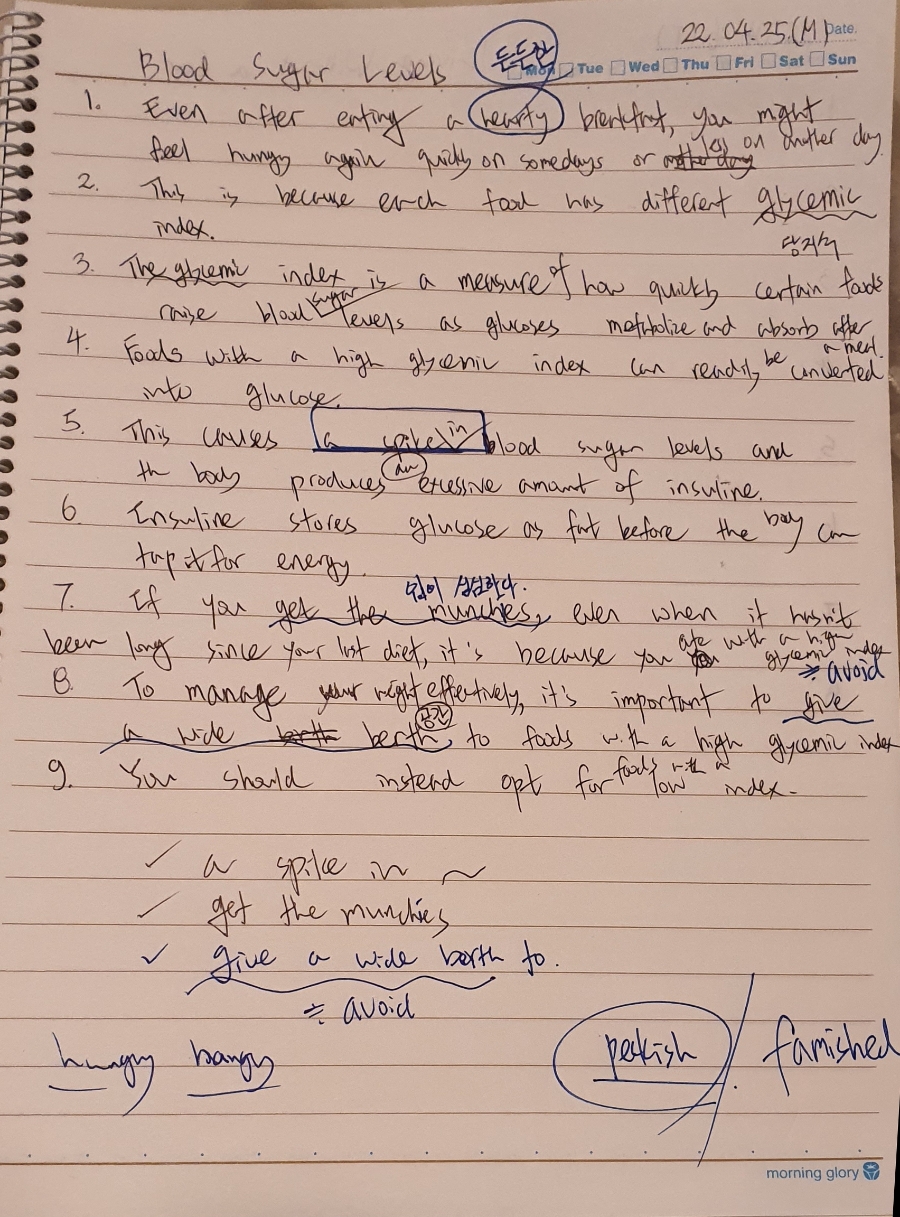 22.04.25.(M) Date.
Blood Sugar Levels 든든한 Mon Tue Wed Thu Fri Sat Sun
1. Even after eating a hearty breakfast, you might
feel hungy again quickly on somedays or less on another day.
2. This is because each food has different glycemic
index.
당지수
3. The glycemic index is a measure of how quickly certain foods
raise blood sugar levels as glucoses metabolize and absorb after a meal.
4. Foods with a high glycemic index can readily be converted
into glucose.
5. This causes a spike in blood sugar levels and
th body produces an excessive amount of insuline.
6 Insuline stores glucose as fat before the body can
tap it for energy.
7. If you get the munchies, even when it hasn't
입이 심심하다.
been long since your last diet, it's because you ate with a high glycemic index
≒ avoid
8. To manage your effectively, it's important to give
a wide berth to foods with a high glycemic index
공간
9. You should instead opt for foods with a low index.
✓ a spike in ~
✓ get the munchies
✓ give a wide berth to.
≒ avoid
hungry hangry peckish / famished
morning glory